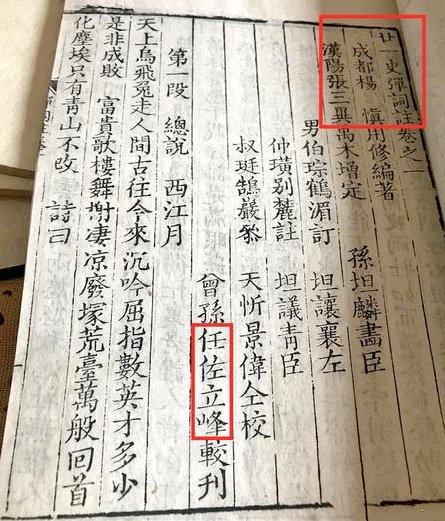 廿一史彈詞註卷之一
成都楊 慎用修編著
漢陽張三異禹木增定 孫坦麟畵臣
男伯琮鶴湄訂 坦讓襄左
仲璜別麓註 坦議青臣
叔珽鵠巖叅 天忻景偉仝校
曾孫任佐立峰較刊
第一段 總說 西江月
天上烏飛兔走人間古往今來沉吟屈指數英才多少
是非成敗 富貴歌樓舞榭凄凉廢塚荒臺萬般回首
化塵埃只有青山不改 詩曰